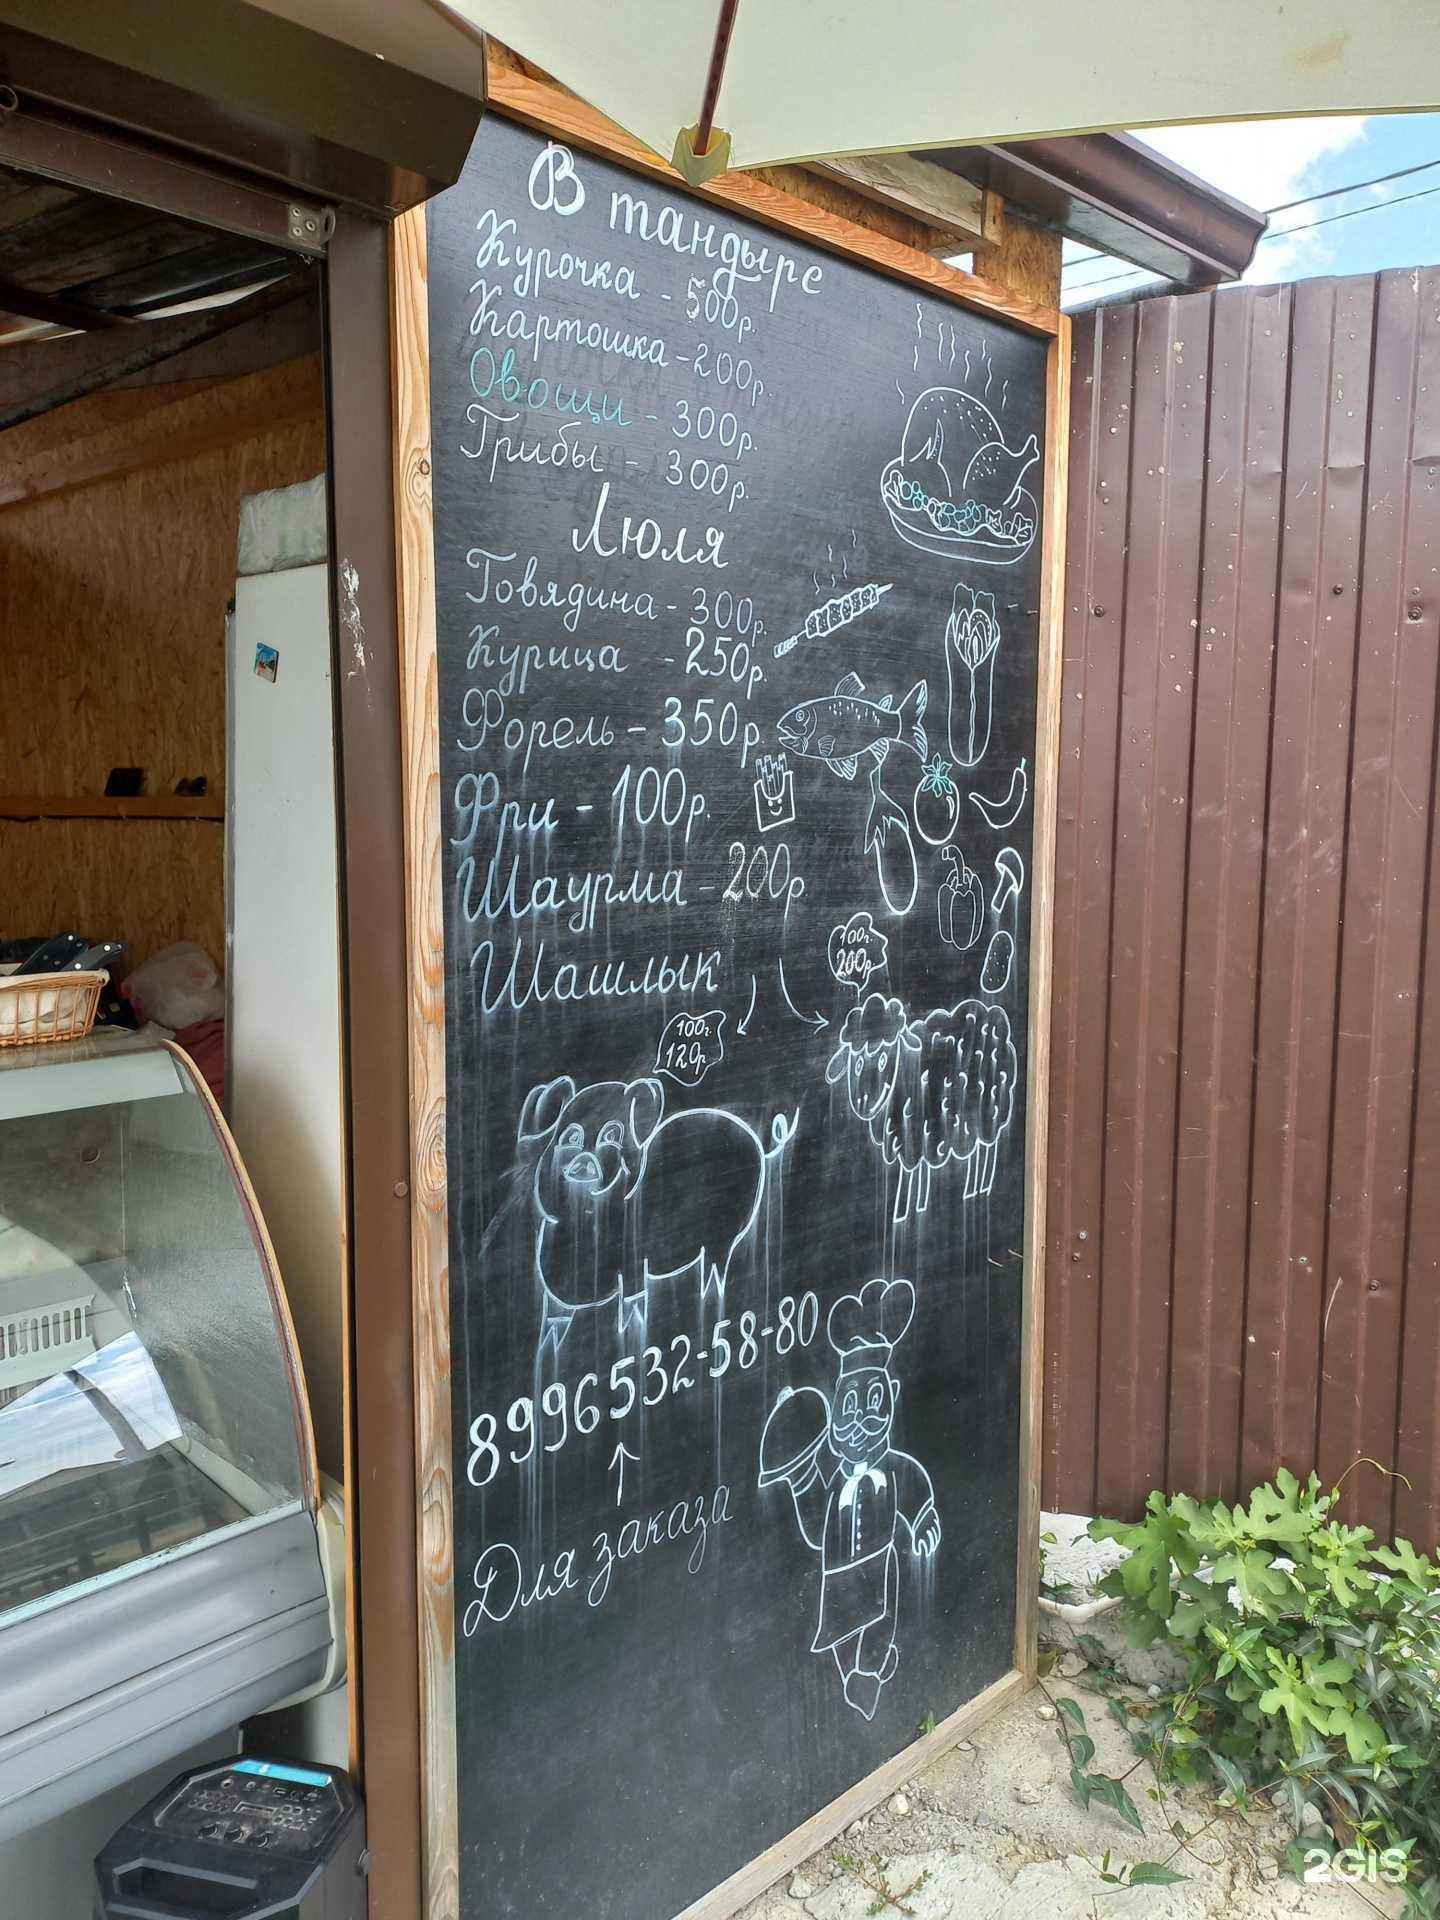 В тандыре
Курочка - 500р.
Картошка - 200р.
Овощи - 300р.
Грибы - 300р.
Люля
Говядина - 300р.
Курица - 250р.
Форель - 350р.
Фри - 100р.
Шаурма - 200р
Шашлык
100г.
200р
100г.
120р
8996532-58-80
Для заказа
2GIS